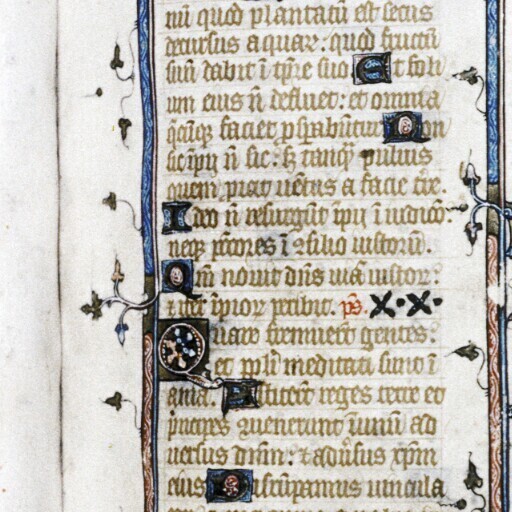 nū quod plantatū est secus
decursus aquar: quod fructū
suū dabit ī tp̄re suo Et foli
um eius n̄ defluet: et omnia
q̄cūq; faciet p̱spabūtur Non
sic īpij n̄ sic: s; tanq̄ puluis
quem proicit uētus a facie tr̄e.
Ideo n̄ resurgūt īpij ī iudicio
neq; pctores ī 9silio iustorū.
Qm̄ nouit dn̄s uiā iustor:
iter īpior peribit. ps. x·x·
Quare fremuerūt gentes:
et ppl̄i meditati sunt ī
ania. Astiterūt reges terre et
p̄ncipes 9uenerunt ī unū ad
uersus dn̄m: & aduersus xp̄m
eius Disrūpamus uincula